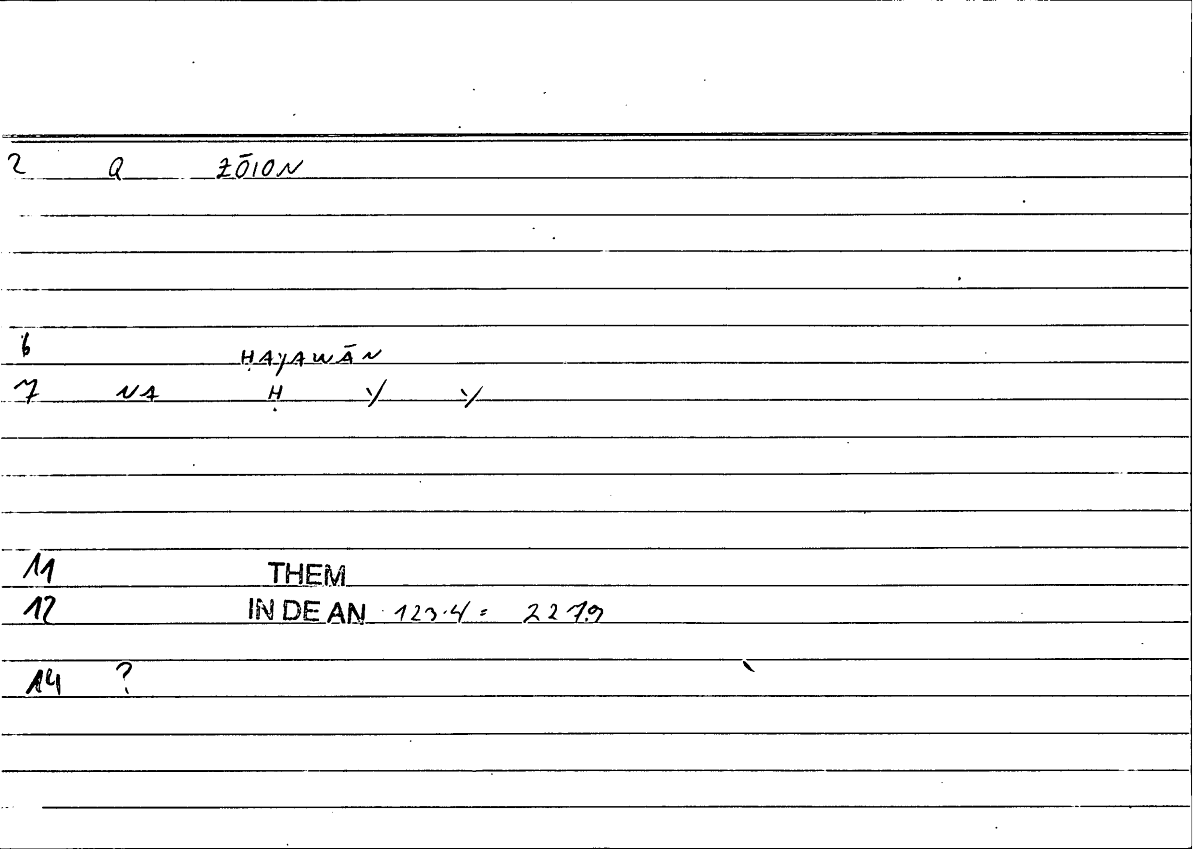 2 Q ZŌION
6 ḤAYAWĀN
7 NA Ḥ Y Y
11 THEM
12 IN DE AN 123.4 = 227.9
14 ?